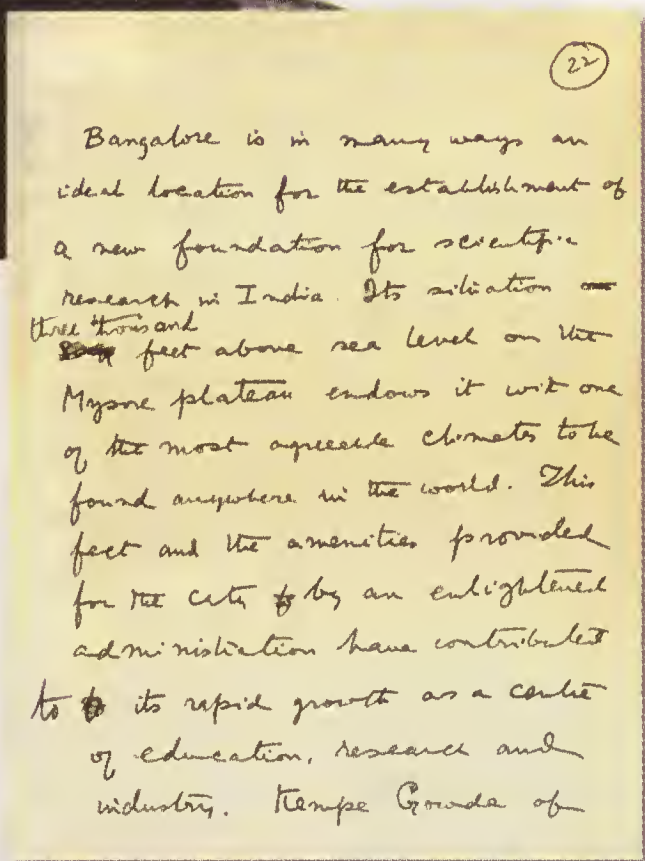 22
Bangalore is in many ways an
ideal location for the establishment of
a new foundation for scientific
research in India. Its situation
three thousand
feet above sea level on the
Mysore plateau endows it wit one
of the most agreeable climates to be
found anywhere in the world. This
fact and the amenities provided
for the city by an enlightened
administration have contributed
to its rapid growth as a centre
of education, research and
industry. Kempe Gowda of